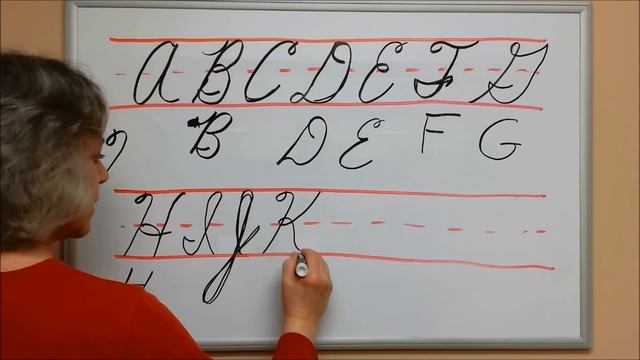 A B C D E F G
B D E F G
H I J K
H